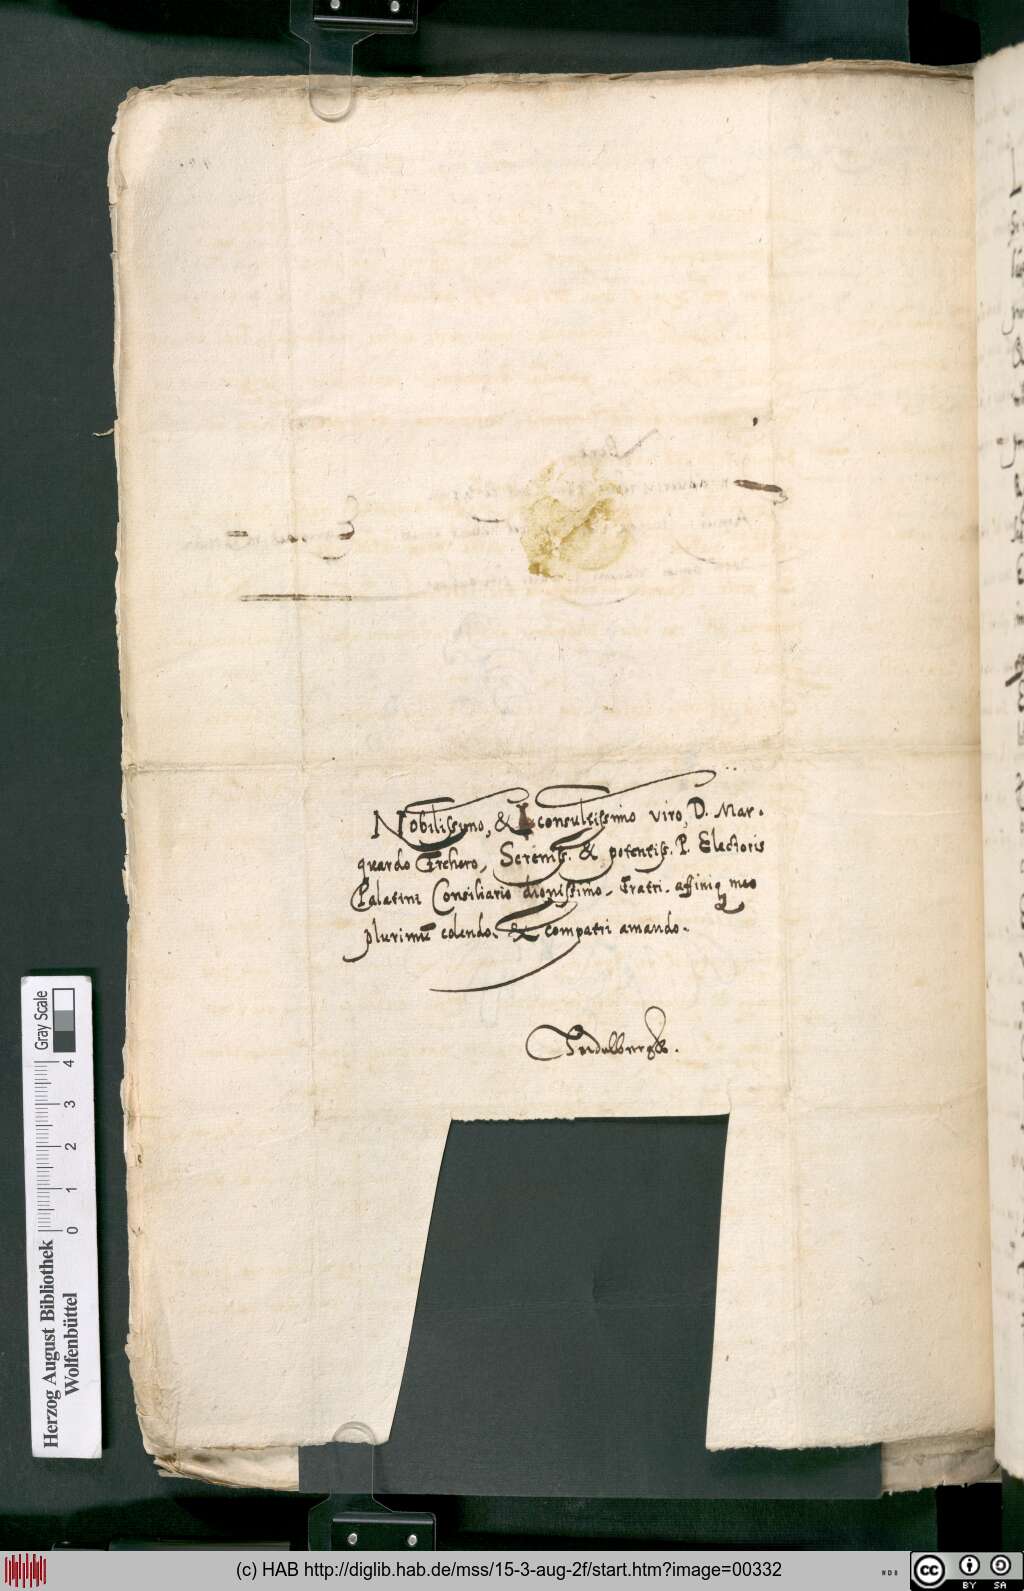 Nobilissimo, & Iconsultissimo viro, D. Mar-
quardo Frehero, Sereniss. & potentiss. P. Electoris
Palatini Consiliario digniſsimo. Fratri. affiniq meo
plurimũ colendo. & compatri amando.
Gray Scale
4
3
2
1
0
Herzog August Bibliothek
Wolfenbüttel
(c) HAB http://diglib.hab.de/mss/15-3-aug-2f/start.htm?image=00332
cc
BY SA